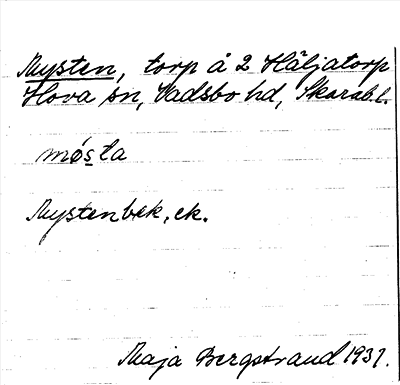 Mysten, torp å 2 Häljatorp
Hova sn, Vadsbo hd, Skarab.l.
møsta
Mystenbek, ek.
Maja Bergstrand 1931.